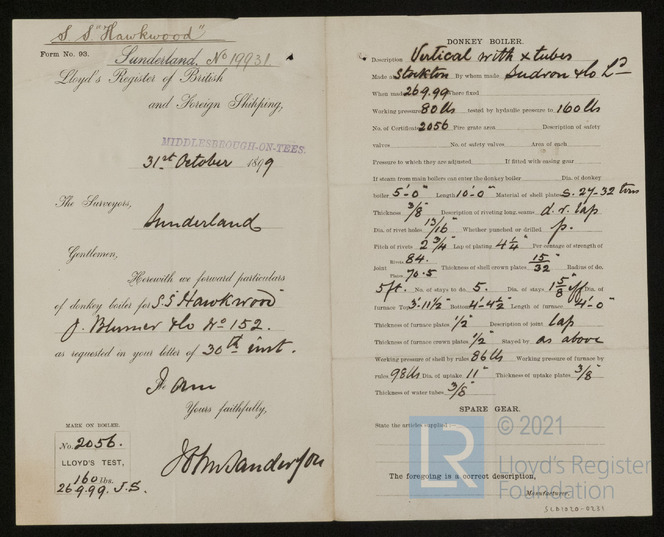 S S "Hawkwood"
Form No. 93.
Sunderland, No 19931.
Lloyd's Register of British
and Foreign Shipping,
MIDDLESBROUGH-ON-TEES.
31st October 1899
The Surveyors,
Sunderland
Gentlemen,
Herewith we forward particulars
of donkey boiler for S.S Hawkwood
J. Blumer & Co No 152.
as requested in your letter of 30th inst.
I am
Yours faithfully,
John Sanderson
MARK ON BOILER.
No. 2056.
LLOYD'S TEST,
160 lbs.
26 9.99. J.S.
DONKEY BOILER.
Description Vertical with x tubes
Made at Stockton By whom made Sudron & Co Ld
When made 26 9.99 Where fixed
Working pressure 80 lbs tested by hydraulic pressure to 160 lbs
No. of Certificate 2056 Fire grate area Description of safety
valves No. of safety valves Area of each
Pressure to which they are adjusted If fitted with easing gear
If steam from main boilers can enter the donkey boiler Dia. of donkey
boiler 5'-0" Length 10'-0" Material of shell plates S. 27-32 tons
Thickness 3/8" Description of riveting long. seams d. r. lap
Dia. of rivet holes 13/16" Whether punched or drilled p.
Pitch of rivets 2 3/4" Lap of plating 4 1/4" Per centage of strength of
Joint Rivets 84. Plates 70.5 Thickness of shell crown plates 15/32" Radius of do.
5 ft. No. of stays to do. 5. Dia. of stays 1 5/8" eff Dia. of
furnace Top 3'-11 1/2" Bottom 4'-4 1/2" Length of furnace 4'-0"
Thickness of furnace plates 1/2" Description of joint lap
Thickness of furnace crown plates 1/2" Stayed by as above
Working pressure of shell by rules 86 lbs Working pressure of furnace by
rules 98 lbs Dia. of uptake 11" Thickness of uptake plates 3/8"
Thickness of water tubes 3/8"
SPARE GEAR.
State the articles supplied:
The foregoing is a correct description,
Manufacturer.
LR
© 2021
Lloyd's Register
Foundation
SLD1020-0231